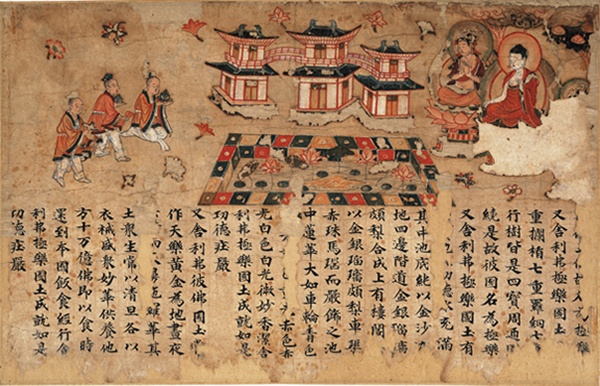 為極樂
又舍利弗極樂國土
重欄楯七重羅網七
行樹皆是四寶周匝
繞是故彼國名為極樂
又舍利弗極樂國土有
充滿
其中池底純以金沙
地四邊階道金銀瑠璃
頗梨合成上有樓閣
以金銀瑠璃頗梨車𤦲
赤珠馬瑙而嚴飾之池
中蓮華大如車輪青色
赤色赤
光白色白光微妙香潔舍
利弗極樂國土成就如是
功德莊嚴
又舍利弗彼佛國土
作天樂黃金為地晝夜
羅華其
土眾生常以清旦各以
衣裓盛眾妙華供養他
方十万億佛即以食時
還到本國飯食經行舍
利弗極樂國土成就如是
功德莊嚴